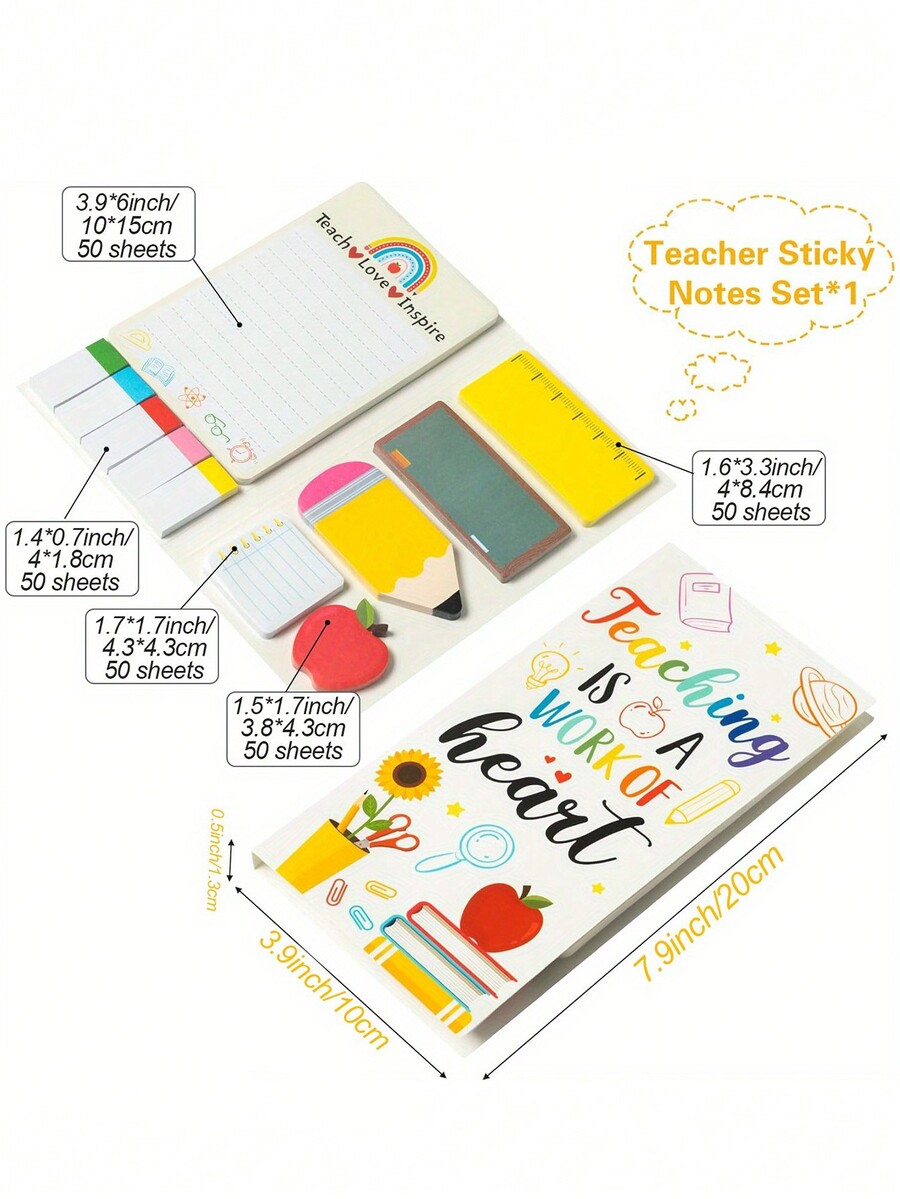 3.9*6inch/
10*15cm
50 sheets
Teach Love Inspire
Teacher Sticky
Notes Set*1
1.6*3.3inch/
4*8.4cm
50 sheets
1.4*0.7inch/
4*1.8cm
50 sheets
1.7*1.7inch/
4.3*4.3cm
50 sheets
1.5*1.7inch/
3.8*4.3cm
50 sheets
Teaching
IS A
WORK OF
heart
0.5inch/1.3cm
3.9inch/10cm
7.9inch/20cm